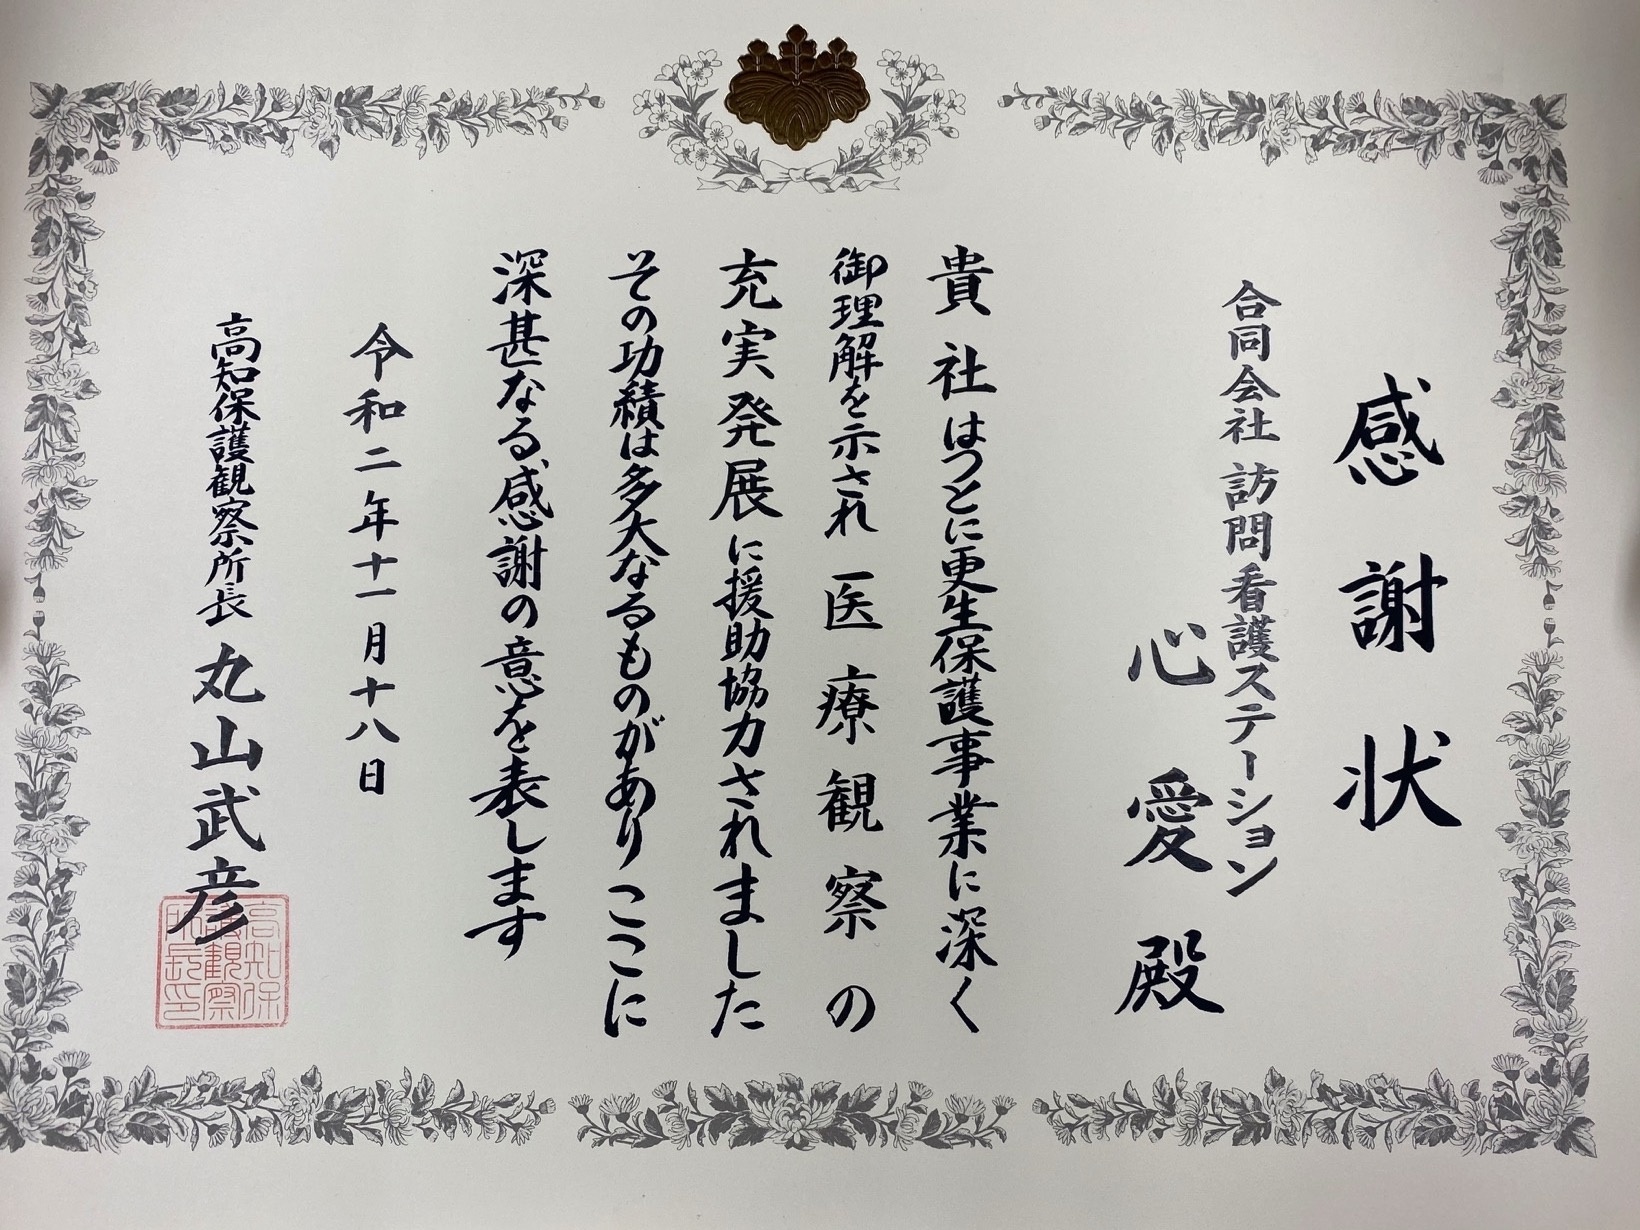 感謝状
合同会社 訪問看護ステーション
心愛殿
貴社はつとに更生保護事業に深く
御理解を示され医療観察の
充実発展に援助協力されました
その功績は多大なるものがありここに
深甚なる感謝の意を表します
令和二年十一月十八日
高知保護観察所長 丸山武彦
高知保
護観察
所長印